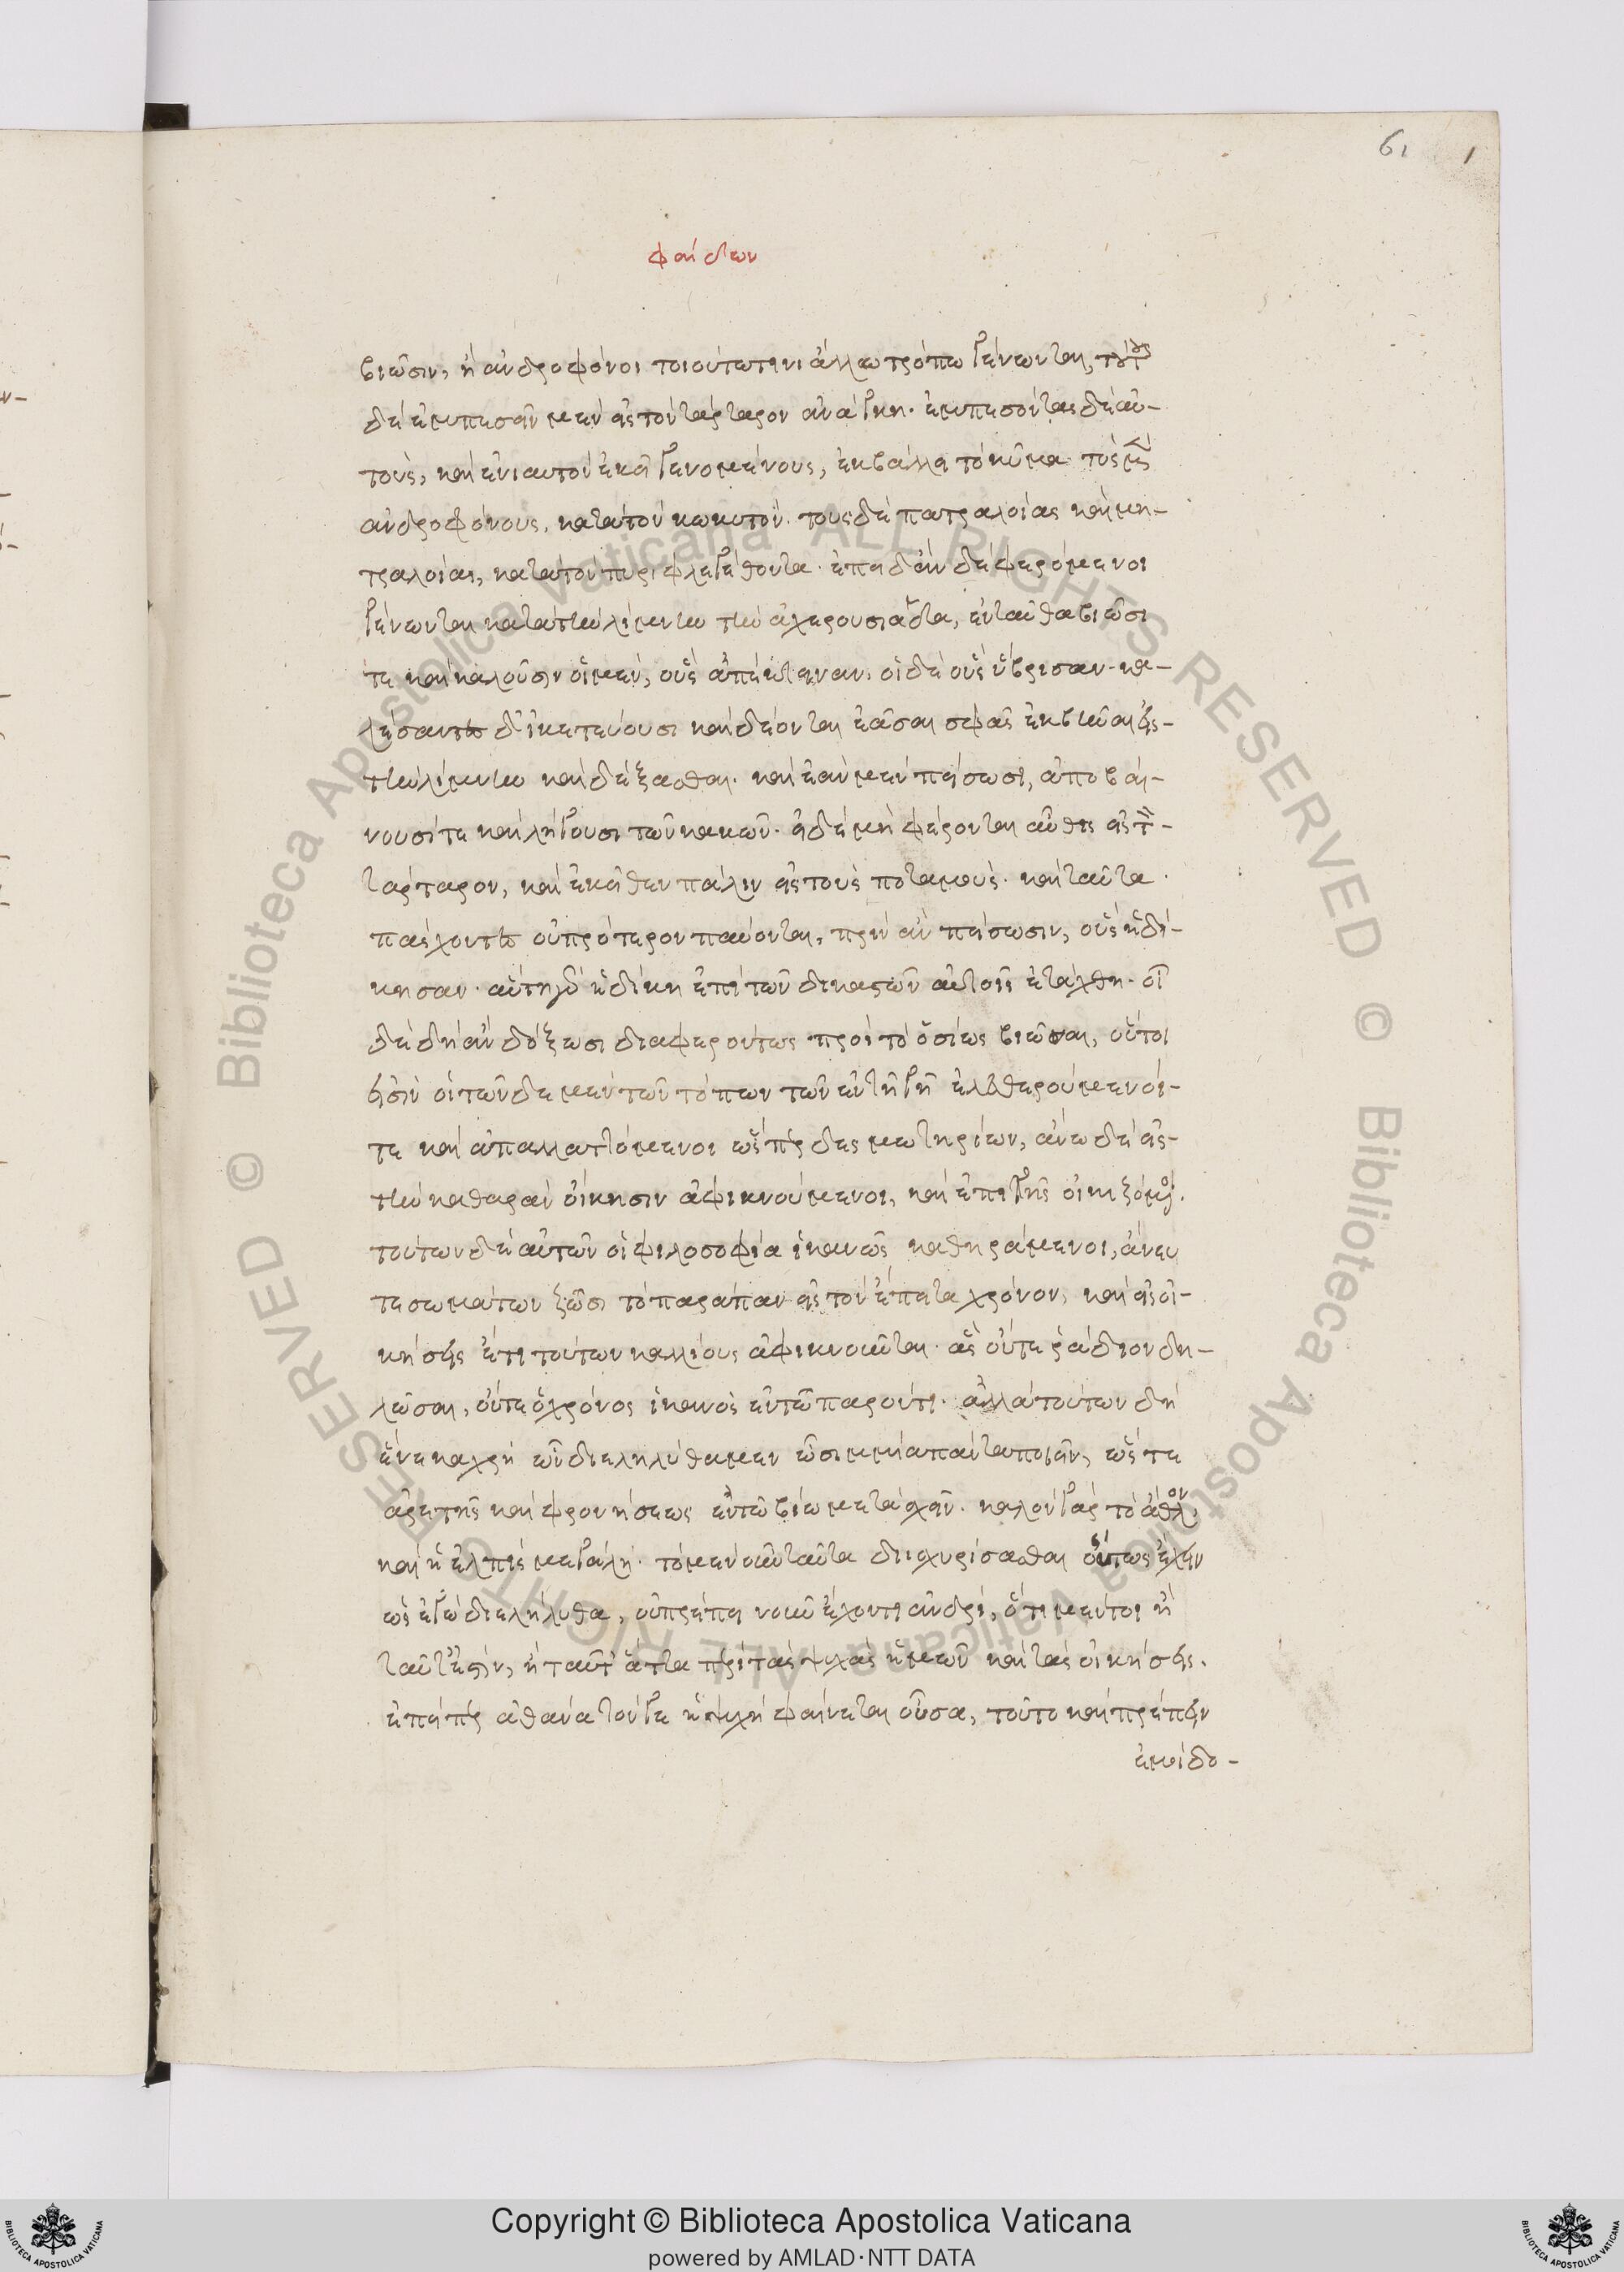 61 1
φαίδων
βιῶσιν, ἢ ἀνδροφόνοι τοιούτω τινι ἄλλω τρόπω γένωνται, τούτους
δὲ ἐμπεσεῖν μὲν εἰς τὸν τάρταρον ἀνάγκη· ἐμπεσόντας δὲ αὐ-
τοὺς, καὶ ἐνιαυτὸν ἐκεῖ γενομένους, ἐκβάλλει τὸ κῦμα· τοὺς μὲν
ἀνδροφόνους, κατὰ τὸν κωκυτόν· τοὺς δὲ πατραλοίας καὶ μη-
τραλοίας, κατὰ τὸν πυριφλεγέθοντα· ἐπειδὰν δὲ φερόμενοι
γένωνται κατὰ τὴν λίμνην τὴν ἀχερουσιάδα, ἐνταῦθα βιῶσι
τε καὶ καλοῦσιν οἱ μὲν, οὓς ἀπέκτειναν, οἱ δὲ οὓς ὕβρισαν· κα-
λέσαντες δ' ἱκετεύουσι καὶ δέονται ἐᾶσαι σφᾶς ἐκβῆναι εἰς
τὴν λίμνην καὶ δέξασθαι· καὶ ἐὰν μὲν πείσωσι, ἀποβαί-
νουσί τε καὶ λήγουσι τῶν κακῶν· εἰ δὲ μὴ φέρονται αὖθις εἰς τὸν
τάρταρον, καὶ ἐκεῖθεν πάλιν εἰς τοὺς ποταμούς· καὶ ταῦτα
πάσχοντες οὐ πρότερον παύονται, πρὶν ἂν πείσωσιν, οὓς ἠδί-
κησαν· αὕτη γὰρ ἡ δίκη ἐπὶ τῶν δικαστῶν αὐτοῖς ἐτάχθη· οἳ
δὲ δὴ ἂν δόξωσι διαφερόντως πρὸς τὸ ὁσίως βιῶναι, οὗτοι
εἰσὶν οἱ τῶνδε μὲν τῶν τόπων τῶν ἐν τῇ γῇ ἐλευθερούμενοί-
τε καὶ ἀπαλλαττόμενοι ὥσπερ δεσμωτηρίων, ἄνω δὲ εἰς
τὴν καθαρὰν οἴκησιν ἀφικνούμενοι, καὶ ἐπὶ γῆς οἰκιζόμενοι.
τούτων δὲ αὐτῶν οἱ φιλοσοφία ἱκανῶς καθηράμενοι, ἄνευ
τε σωμάτων ζῶσι τὸ παράπαν εἰς τὸν ἔπειτα χρόνον, καὶ εἰς οἰ-
κήσεις ἔτι τούτων καλλίους ἀφικνοῦνται· ἃς οὔτε ῥάδιον δη-
λῶσαι, οὔτε ὁ χρόνος ἱκανὸς ἐν τῶ παρόντι· ἀλλὰ τούτων δὴ
ἕνεκα χρὴ ὧν διεληλύθαμεν ὦ σιμμία πάντα ποιεῖν, ὥστε
ἀρετῆς καὶ φρονήσεως ἐν τῶ βίω μετασχεῖν· καλὸν γὰρ τὸ ἆθλον,
καὶ ἡ ἐλπὶς μεγάλη· τὸ μὲν οὖν ταῦτα διϊσχυρίσασθαι οὕτως ἔχειν
ὡς ἐγὼ διελήλυθα, οὐ πρέπει νοῦν ἔχοντι ἀνδρί, ὅτι μέντοι ἢ
ταῦτ' ἐστὶν, ἢ τοιαῦτ' ἄττα περὶ τὰς ψυχὰς ἡμῶν καὶ τὰς οἰκήσεις,
ἐπείπερ ἀθάνατόν γε ἡ ψυχὴ φαίνεται οὖσα, τοῦτο καὶ πρέπειν
ἐμοὶ δο-
Copyright © Biblioteca Apostolica Vaticana
powered by AMLAD·NTT DATA